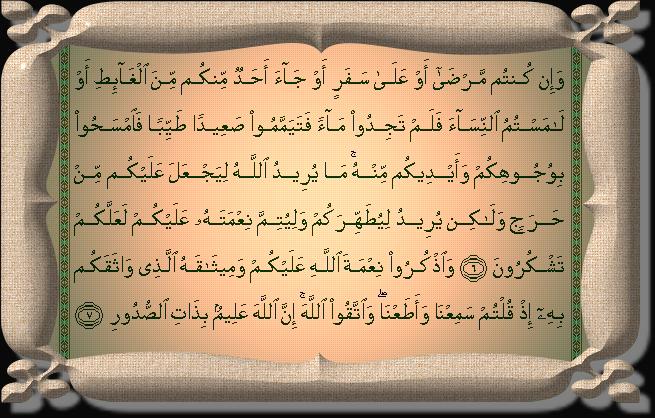 وَإِن كُنتُم مَّرْضَىٰٓ أَوْ عَلَىٰ سَفَرٍ أَوْ جَآءَ أَحَدٌ مِّنكُم مِّنَ ٱلْغَآئِطِ أَوْ
لَٰمَسْتُمُ ٱلنِّسَآءَ فَلَمْ تَجِدُوا۟ مَآءً فَتَيَمَّمُوا۟ صَعِيدًا طَيِّبًا فَٱمْسَحُوا۟
بِوُجُوهِكُمْ وَأَيْدِيكُم مِّنْهُ ۚ مَا يُرِيدُ ٱللَّهُ لِيَجْعَلَ عَلَيْكُم مِّنْ
حَرَجٍ وَلَٰكِن يُرِيدُ لِيُطَهِّرَكُمْ وَلِيُتِمَّ نِعْمَتَهُۥ عَلَيْكُمْ لَعَلَّكُمْ
تَشْكُرُونَ ٦ وَٱذْكُرُوا۟ نِعْمَةَ ٱللَّهِ عَلَيْكُمْ وَمِيثَٰقَهُ ٱلَّذِى وَاثَقَكُم
بِهِۦٓ إِذْ قُلْتُمْ سَمِعْنَا وَأَطَعْنَا ۖ وَٱتَّقُوا۟ ٱللَّهَ ۚ إِنَّ ٱللَّهَ عَلِيمٌۢ بِذَاتِ ٱلصُّدُورِ ٧